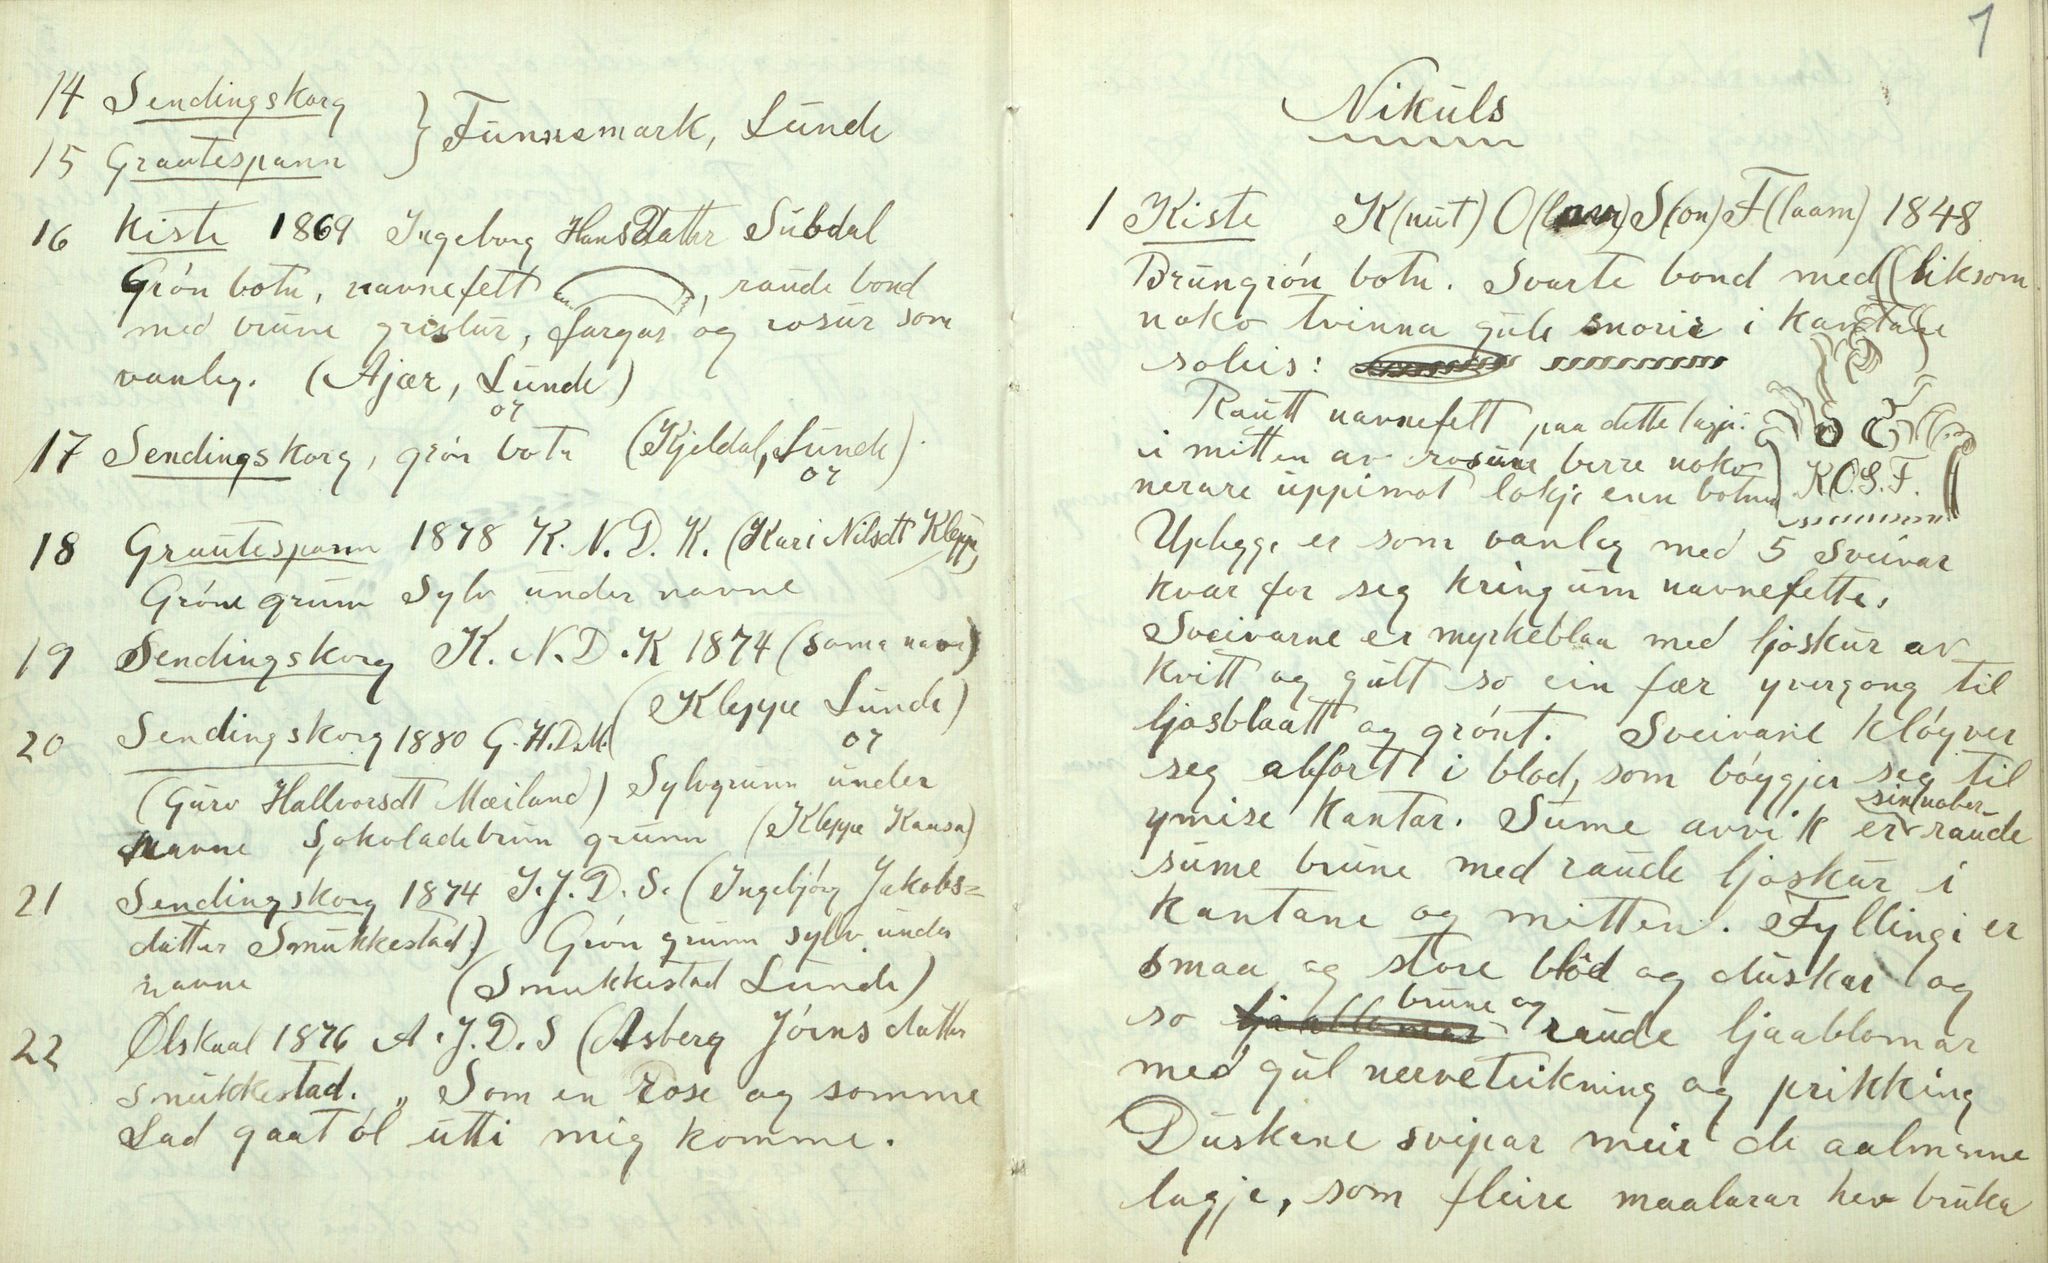 14 Sendingskorg
15 Grautespann } Funnemark, Lunde
16 Kiste 1869 Ingeborg HansDatter Subdal
Grón botn, navnefelt , raude bond
med brune greslur, fargar og rosur som
vanleg. (Ajær, Lunde)
17 Sendingskorg, grón botn (Kjeldal, Lunde)
18 Grautespann 1878 K. N. D. K. (Kari Nilsdtt Kleppe)
Gróne grunn Sylv under navne
19 Sendingskorg K. N. D. K 1874 (sama navn)
(Kleppe Lunde)
20 Sendingskorg 1880 G. H. D. M.
(Guro Hallvorsdt Mæiland) Sylvgrunn under
navne Sjokoladebrun grunn (Kleppe Kaasa)
21 Sendingskorg 1874 I. J. D. S. (Ingebjórg Jakobs=
dattur Smukkestad) Grón grunn sylv under
navne (Smukkestad Lunde)
22 Ølskaal 1876 A. J. D. S (Asberg Jórns datter
Smukkestad. „ Som en rose og somme
Lad gaat ól utti mig komme.
7
Nikuls
1 Kiste K(nut) O(lav) S(on) F(laam) 1848
Brungrón botn. Svarte bond med (liksom
noko tvinna gule snorir i kantane
soleis:
Rautt navnefelt paa dette lagje:
i mitten av rosune berre noko
nerare uppimot lokje enn botnen
K.O.S.F.
Uplegge er som vanleg med 5 Sveivar
kvar for seg kringum navnefette.
Sveivarne er myrkeblaa med ljoskur av
kvitt og gult so ein fær yvergong til
ljosblaatt og grónt. Sveivane klóyver
seg abfort i blod, som bóygjer seg til
ymise kantar. Sume avvik er sinnober-raude
sume brune med raude ljoskur i
kantane og mitten. Fyllingi er
smaa og store blód og duskar og
so brune og raude ljaablomar
med gul nerveteikning og prikking
Duskane svipar meir de aalmenne
lagje, som fleire maalarar hev bruka